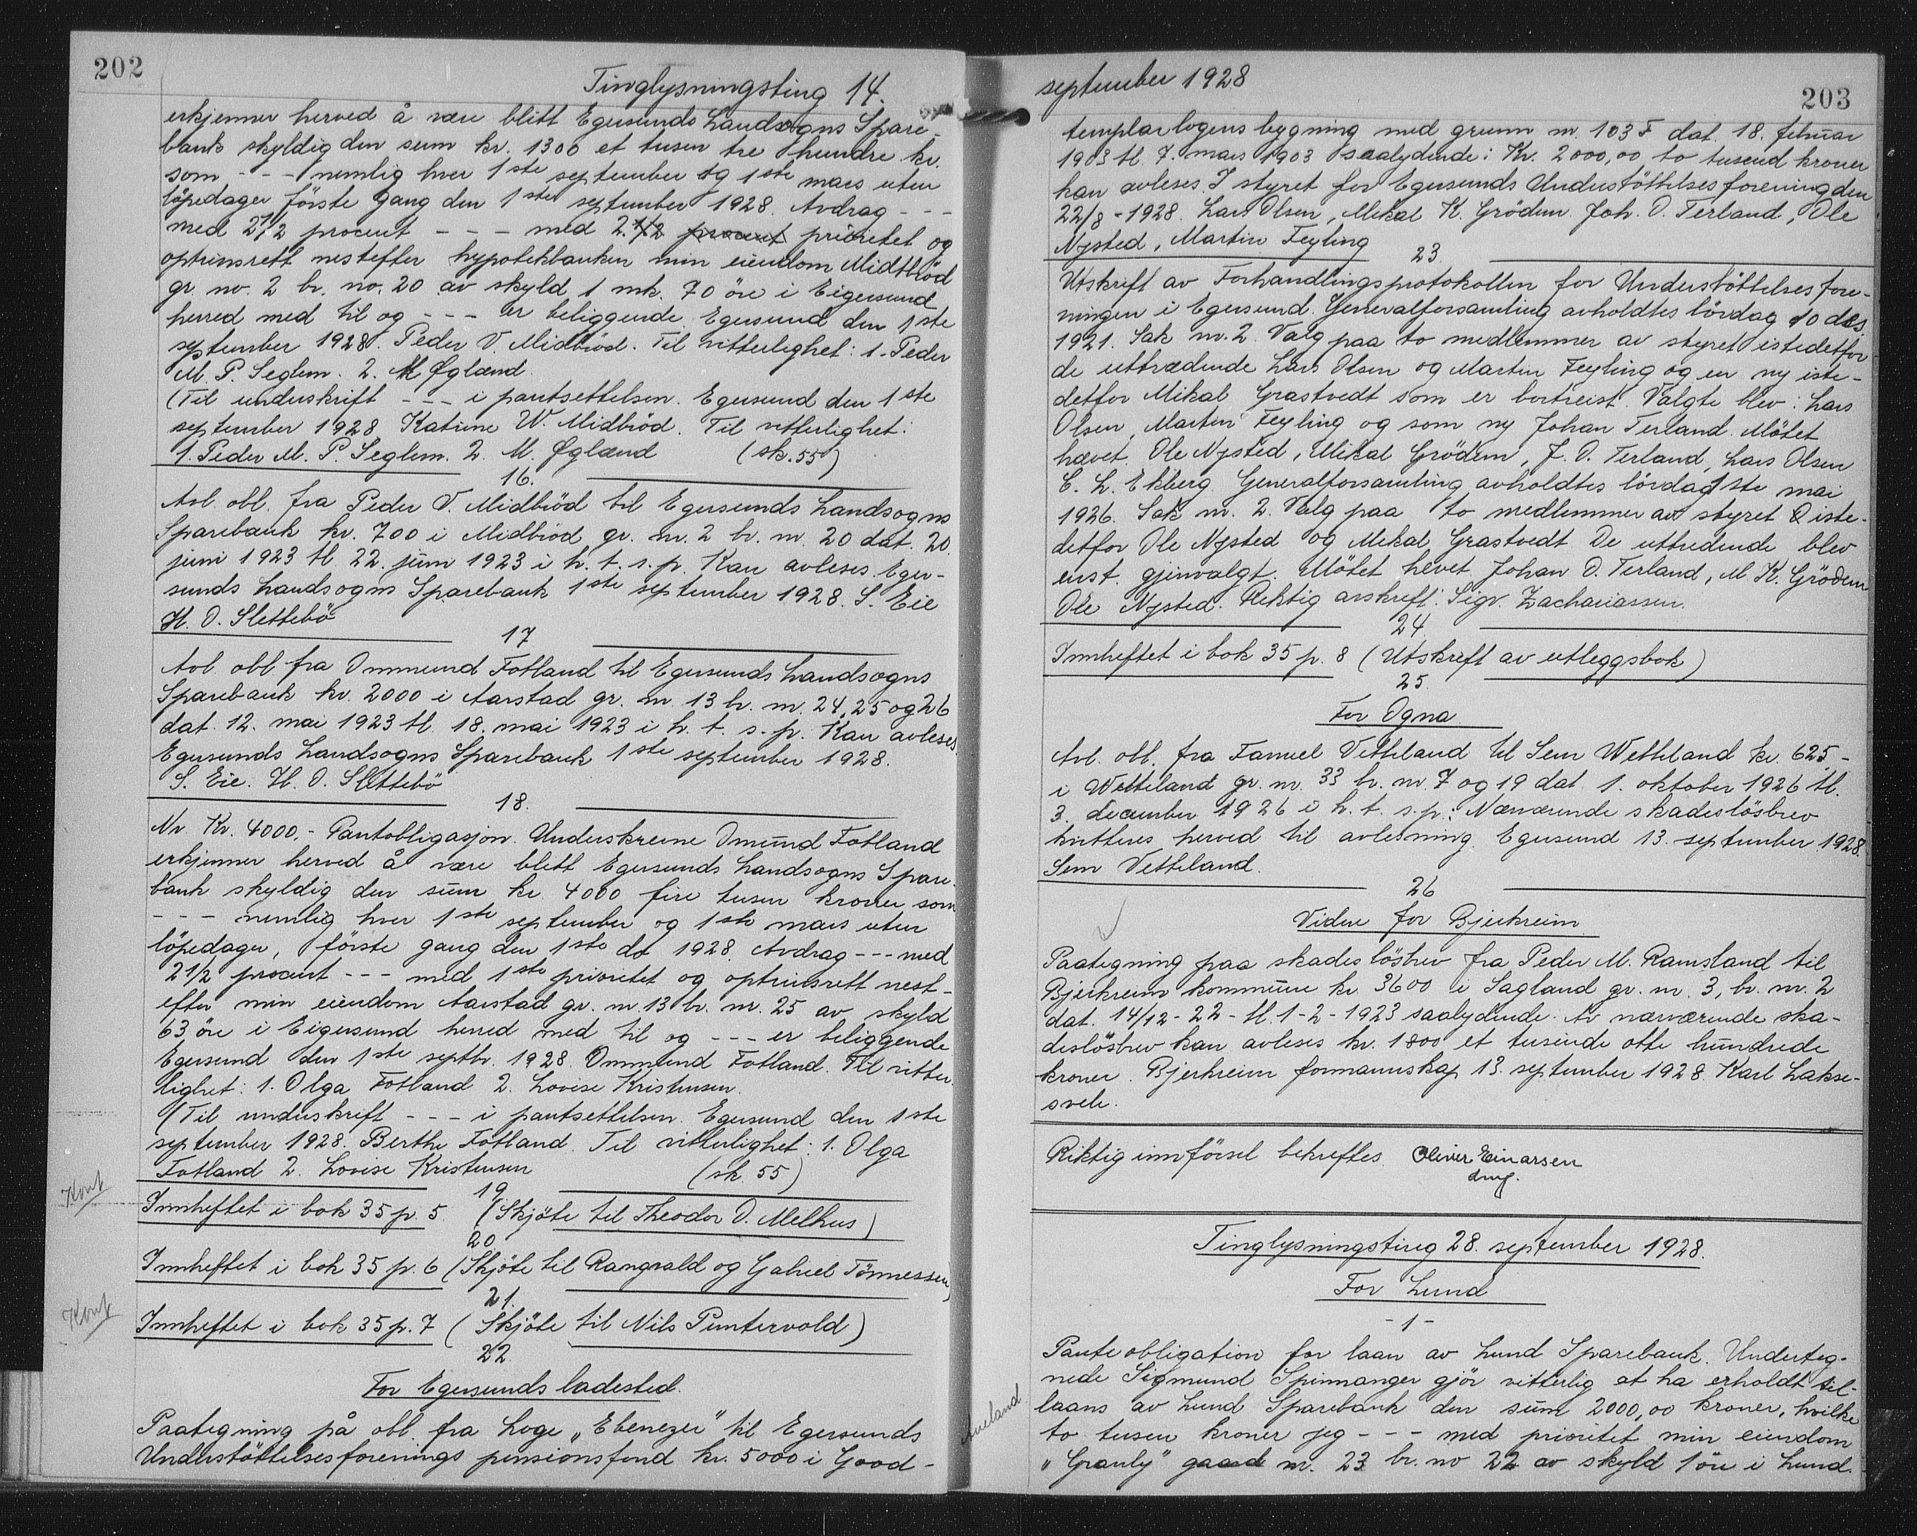 202
Tinglysningsting 14.
erkjenner herved å være blitt Egersunds Landsogns Spare-
bank skyldig den sum kr. 1300 et tusen tre hundre kr.
som - - - nemlig hver 1ste september og 1ste mars uten
löpedager förste gang den 1ste september 1928. Avdrag - - -
med 2 1/2 procent - - - med 2. prioritet og
optrinsrett nestefter hypotekbanken min eiendom Midtböd
gr no. 2 br. no. 20 av skyld 1 mk. 70 öre i Eigersund
herred med til og - - - er beliggende. Egersund den 1ste
september 1928. Peder V. Midbröd. Til vitterlighet: 1. Peder
M. P. Seglem. 2. M Øglænd.
(Til underskrift - - - i pantsettelsen. Egersund den 1ste
september 1928 Katrine W. Midbröd. Til vitterlighet:
1. Peder M. P. Seglem. 2. M. Øglænd (sk. 55)
16.
Avl. obl. fra Peder V. Midbröd til Egersunds Landsogns
Sparebank kr. 700 i Midbröd gr. nr. 2 br. nr. 20 dat. 20.
juni 1923 tl. 22. juni 1923 i h. t. s. p. Kan avleses Eger-
sunds Landsogns Sparebank 1ste september 1928. S. Eie
H. O. Slettebö
17
Avl. obl fra Ommund Fotland til Egersunds Landsogns
Sparebank kr. 2000 i Aarstad gr. nr. 13 br. nr. 24, 25 og 26
dat. 12. mai 1923 tl. 18. mai 1923 i h. t. s. p. Kan avleses
Egersunds Landsogns Sparebank 1ste september 1928.
S. Eie. H. O. Slettebö
18.
Nr Kr. 4000,- Pantobligasjon. Underskrevne Omund Fotland
erkjenner herved å være blitt Egersunds Landsogns Spare-
bank skyldig den sum kr 4000 fire tusen kroner som
- - - nemlig hver 1ste september og 1ste mars uten
löpedager, förste gang den 1ste do 1928. Avdrag - - - med
2 1/2 procent - - - med 1ste prioritet og optrinsrett nest-
efter min eiendom Aarstad gr. nr 13 br. nr. 25 av skyld
63 öre i Eigersund herred med til og - - - er beliggende
Egersund den 1ste septbr. 1928 Ommund Fotland. Til vitter-
lighet: 1. Olga Fotland 2. Lovise Kristensen.
(Til underskrift - - - i pantsettelsen. Egersund den 1ste
september 1928. Berthe Fotland. Til vitterlighet: 1. Olga
Fotland 2. Lovise Kristensen (sk. 55)
19
Kont
Innheftet i bok 35 p. 5. (Skjöte til Theodor O. Melhus)
20
Innheftet i bok 35 p. 6 (Skjöte til Rangvald og Gabriel Tönnessen)
21.
Kont
Innheftet i bok 35 p. 7 (Skjöte til Nils Puntervold)
22
For Egersunds ladested.
Paategning på obl. fra Loge „Ebenezer" til Egersunds
Understöttelsesforenings pensionsfond kr. 5000 i Good-
september 1928
203
templarlogens bygning med grunn nr. 103 F dat. 18. februar
1903 tl. 7. mars 1903 saalydende: Kr. 2000,00 to tusend kroner
kan avleses. I styret for Egersunds Understöttelsesforening den
22/8 - 1928. Lars Olsen, Mikal K. Grödem. Joh. O. Terland, Ole
Nysted, Martin Feyling
23.
Utskrift av Forhandlingsprotokollen for Understöttelsesfore-
ningen i Egersund. Generalforsamling avholdtes lördag 10 des
1921. Sak nr. 2. Valg paa to medlemmer av styret istedetfor
de uttrædende Lars Olsen og Martin Feyling og en ny iste-
detfor Mikal Grastvedt som er bortreist. Valgte blev: Lars
Olsen, Martin Feyling og som ny Johan Terland. Mötet
hævet. Ole Nysted, Mikal Grödem, J. O. Terland, Lars Olsen
C. L. Ekberg. Generalforsamling avholdtes lördag 1ste mai
1926. Sak nr. 2. Valg paa to medlemmer av styret iste-
detfor Ole Nysted og Mikal Grastvedt De uttredende blev
enst. gjenvalgt. Mötet hevet Johan O. Terland, M. K. Grödem
Ole Nysted. Riktig avskrift: Sigv. Zachariassen.
24
Innheftet i bok 35 p. 8 (Utskrift av utleggsbok)
25
For Ogna
Avl. obl. fra Samuel Vetteland til Sem Wetteland kr. 625,-
i Wetteland gr. nr. 33 br. nr. 7 og 19 dat. 1. oktober 1926 tl.
3. december 1926 i h. t. s. p.: Nærværende skadeslösbrev
kvitteres herved til avlesning. Egersund 13. september 1928.
Sem Vetteland.
26
Videre for Bjerkreim
Paategning paa skadeslösbrev fra Peder M. Ramsland til
Bjerkreim kommune kr. 3600 i Sagland gr. nr. 3, br. nr. 2
dat. 14/12 - 22 - tl. 1-2-1923 saalydende: Av nærværende ska-
deslösbrev kan avleses kr. 1800 et tusinde otte hundrede
kroner. Bjerkreim formannskap 13. september 1928. Karl Lakse-
svele.
Riktig innförsel bekreftes Oliver Einarsen
dmf.
Tinglysningsting 28. september 1928.
For Lund
-1-
Panteobligation for laan av Lund Sparebank. Underteg-
nede Sigmund Spinnanger gjör vitterlig at ha erholdt til-
laans av Lund Sparebank den sum 2000,00 kroner, hvilke
to tusen kroner jeg - - - med prioritet min eiendom
„Granly" gaard nr. 23 br. no 22 av skyld 1 öre i Lund